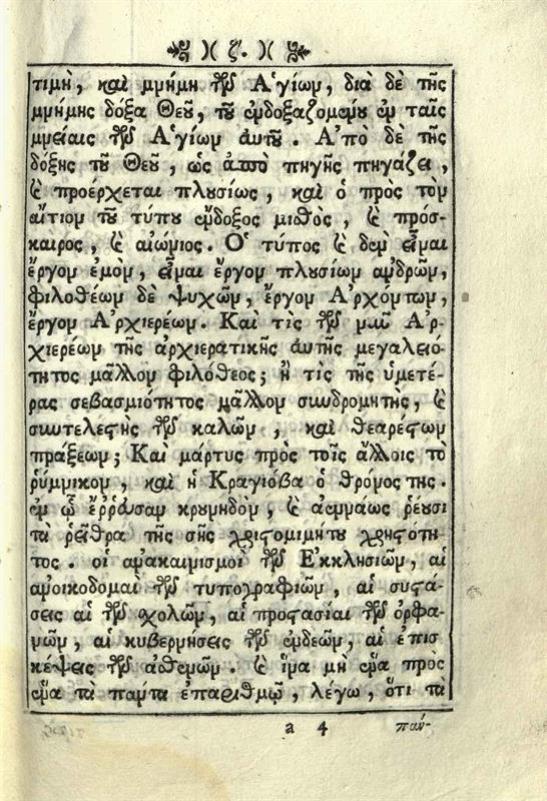 )( ζ. )(
τιμὴ, καὶ μνήμη τῶν Ἁγίων, διὰ δὲ τῆς
μνήμης δόξα Θεοῦ, τοῦ ἐνδοξαζομένου ἐν ταῖς
μνείαις τῶν Ἁγίων ἀυτοῦ. Ἀπὸ δὲ τῆς
δόξης τοῦ Θεοῦ, ὡς ἀπὸ πηγῆς πηγάζει,
καὶ προέρχεται πλουσίως, καὶ ὁ πρὸς τὸν
αἴτιον τοῦ τύπου ἔνδοξος μισθὸς, καὶ πρόσ-
καιρος, καὶ αἰώνιος. Ὁ τύπος καὶ δὲν εἶναι
ἔργον ἐμὸν, εἶναι ἔργον πλουσίων ἀνδρῶν,
φιλοθέων δὲ ψυχῶν, ἔργον Ἀρχόντων,
ἔργον Ἀρχιερέων. Καὶ τίς τῶν νῦν Ἀρ-
χιερέων τῆς ἀρχιερατικῆς ἀυτῆς μεγαλειό-
τητος μᾶλλον φιλόθεος; ἢ τίς τῆς ὑμετέ-
ρας σεβασμιότητος μᾶλλον συνδρομητὴς, καὶ
συντελεστὴς τῶν καλῶν, καὶ θεαρέστων
πράξεων; Καὶ μάρτυς πρὸς τοῖς ἄλλοις τὸ
ῥύμνικον, καὶ ἡ Κραγιόβα ὁ θρόνος της.
ἐν ᾧ ἔῤῥευσαν κρουνηδὸν, καὶ ἀεννάως ῥέουσι
τὰ ῥεῖθρα τῆς σῆς χριστομιμήτου χρηστότη-
τος. οἱ ἀνακαινισμοὶ τῶν Ἐκκλησιῶν, αἱ
ἀνοικοδομαὶ τῶν τυπογραφιῶν, αἱ συστά-
σεις αἱ τῶν σχολῶν, αἱ προστασίαι τῶν ὀρφα-
νῶν, αἱ κυβερνήσεις τῶν ἐνδεῶν, αἱ ἐπισ
κέψεις τῶν ἀσθενῶν. καὶ ἵνα μὴ ἕνα πρὸς
ἕνα τὰ πάντα ἐπαριθμῶ, λέγω, ὅτι τὰ
a 4 πάν-